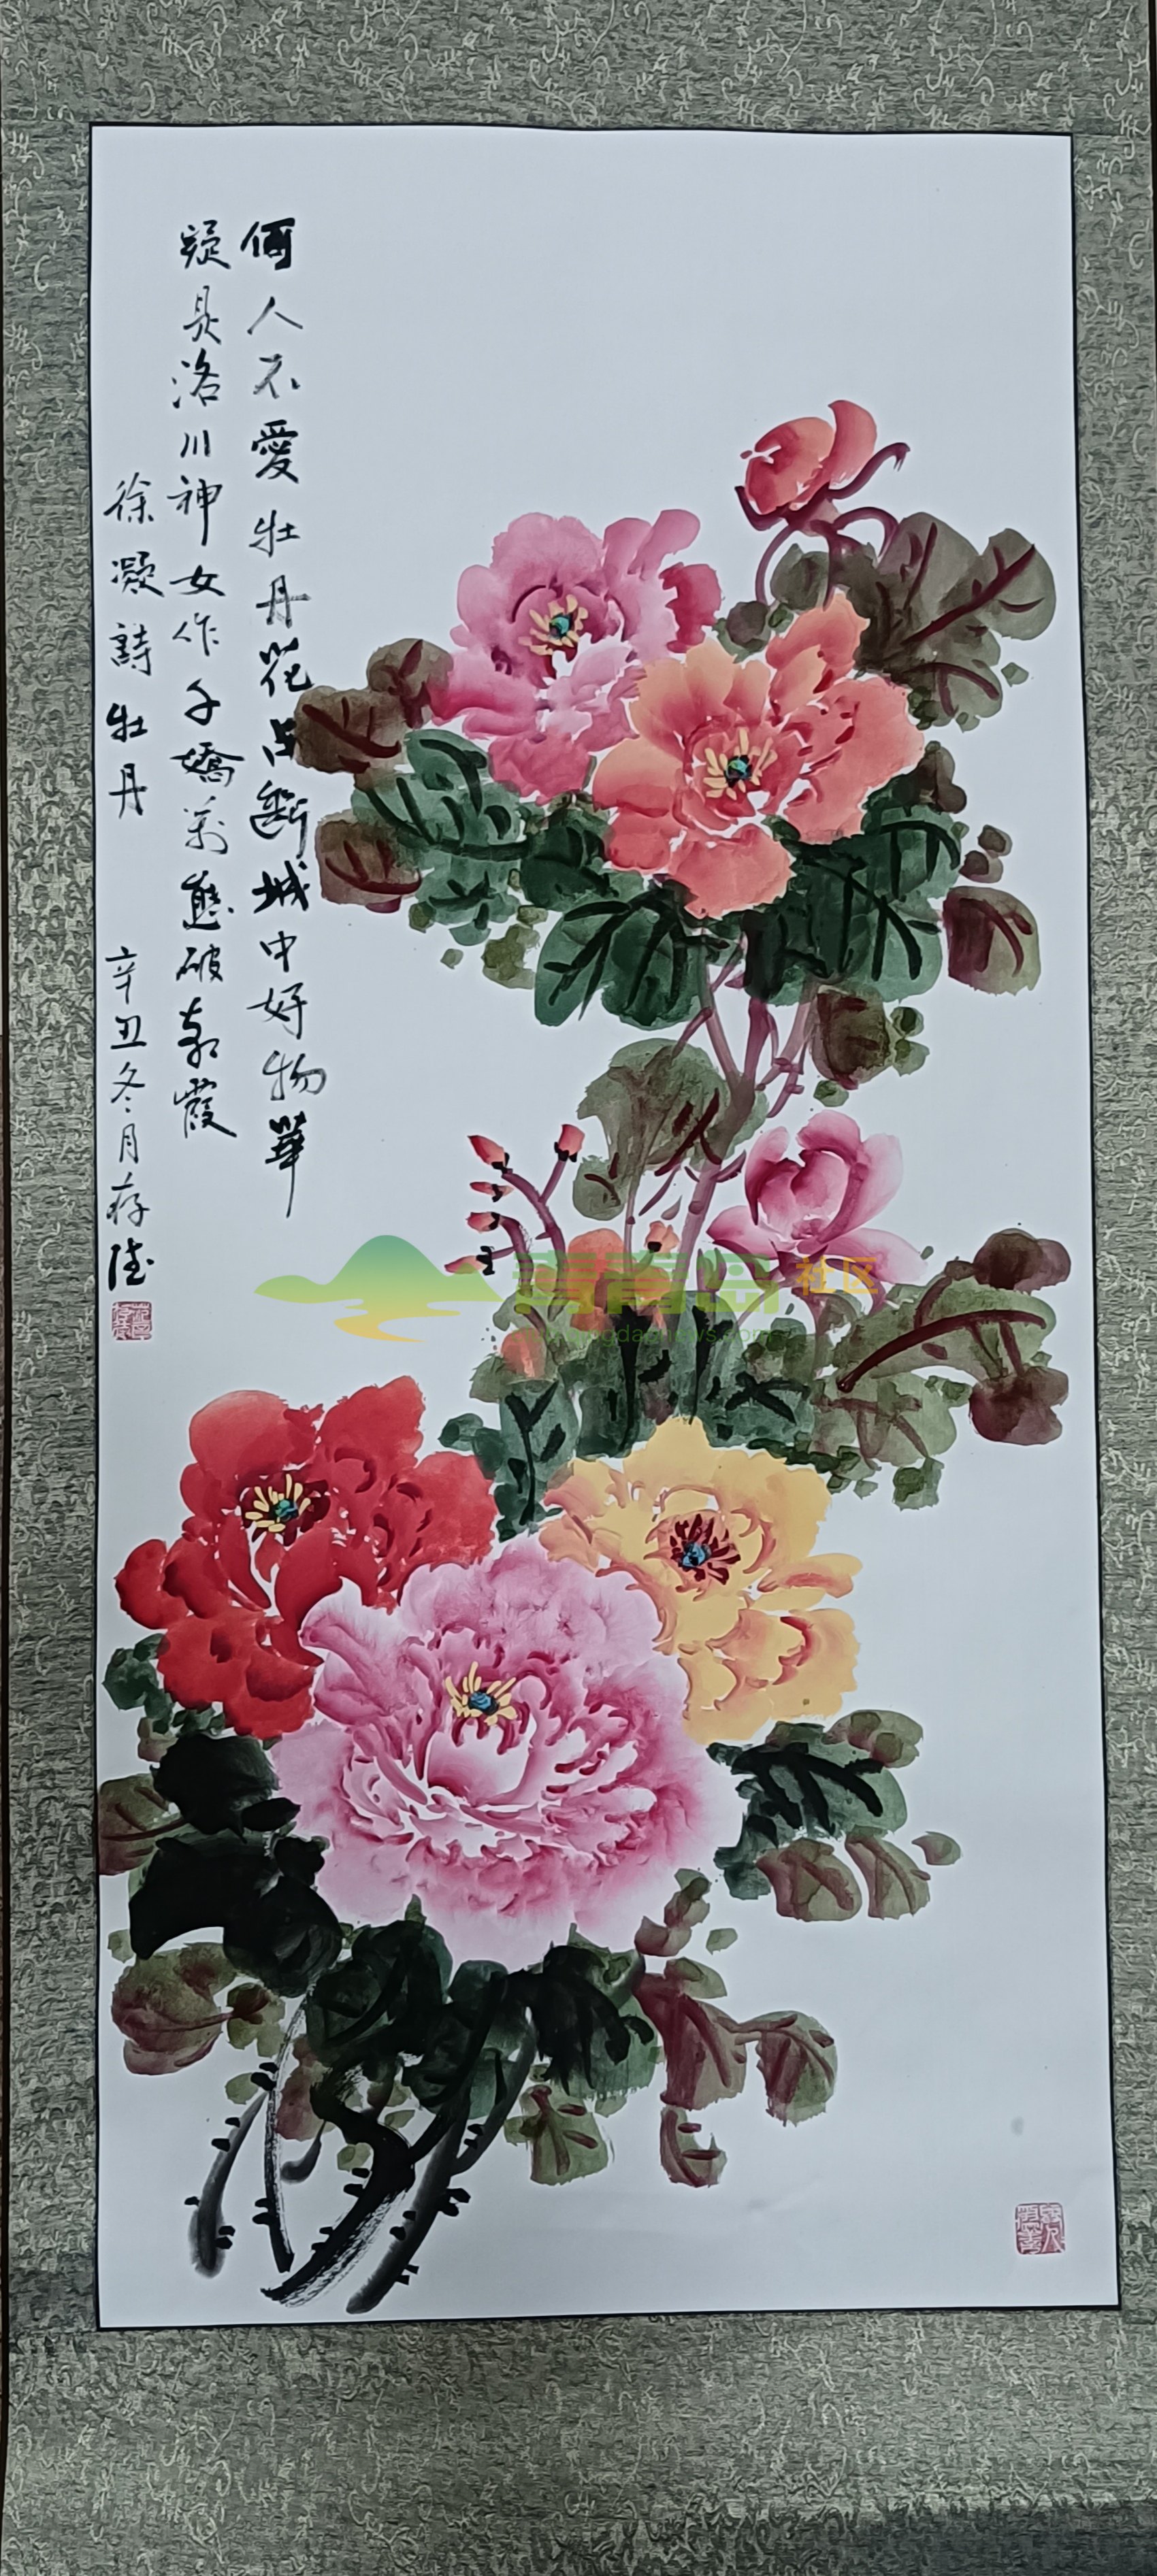 何人不愛牡丹花占斷城中好物華
疑是洛川神女作千嬌萬態破朝霞
徐凝詩牡丹 辛丑冬月存
青青岛社区